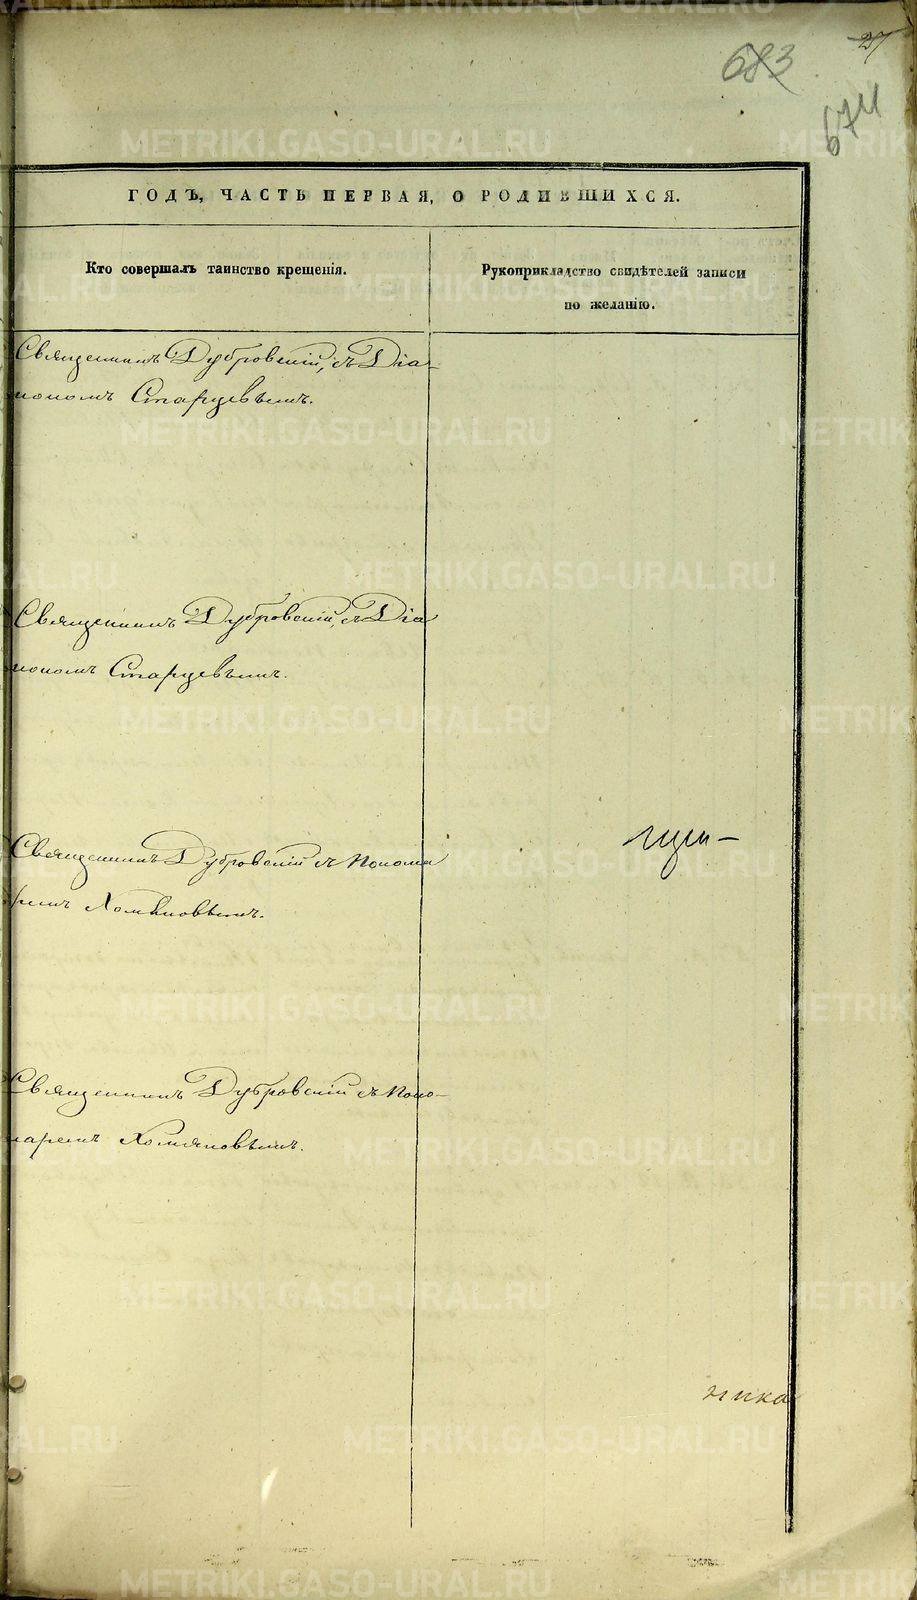 27
683
674
ГОДЪ, ЧАСТЬ ПЕРВАЯ, О РОДИВШИХСЯ.
Кто совершалъ таинство крещенія.
Рукоприкладство свидѣтелей записи
по желанію.
Священникъ Дубровскій, съ Діа-
кономъ Старцевымъ.
Священникъ Дубровскій, съ Діа
кономъ Старцевымъ.
Священникъ Дубровскій съ Понома
ремъ Хомяковымъ.
Священникъ Дубровскій съ Поно-
маремъ Хомяковымъ.
ника
METRIKI.GASO-URAL.RU